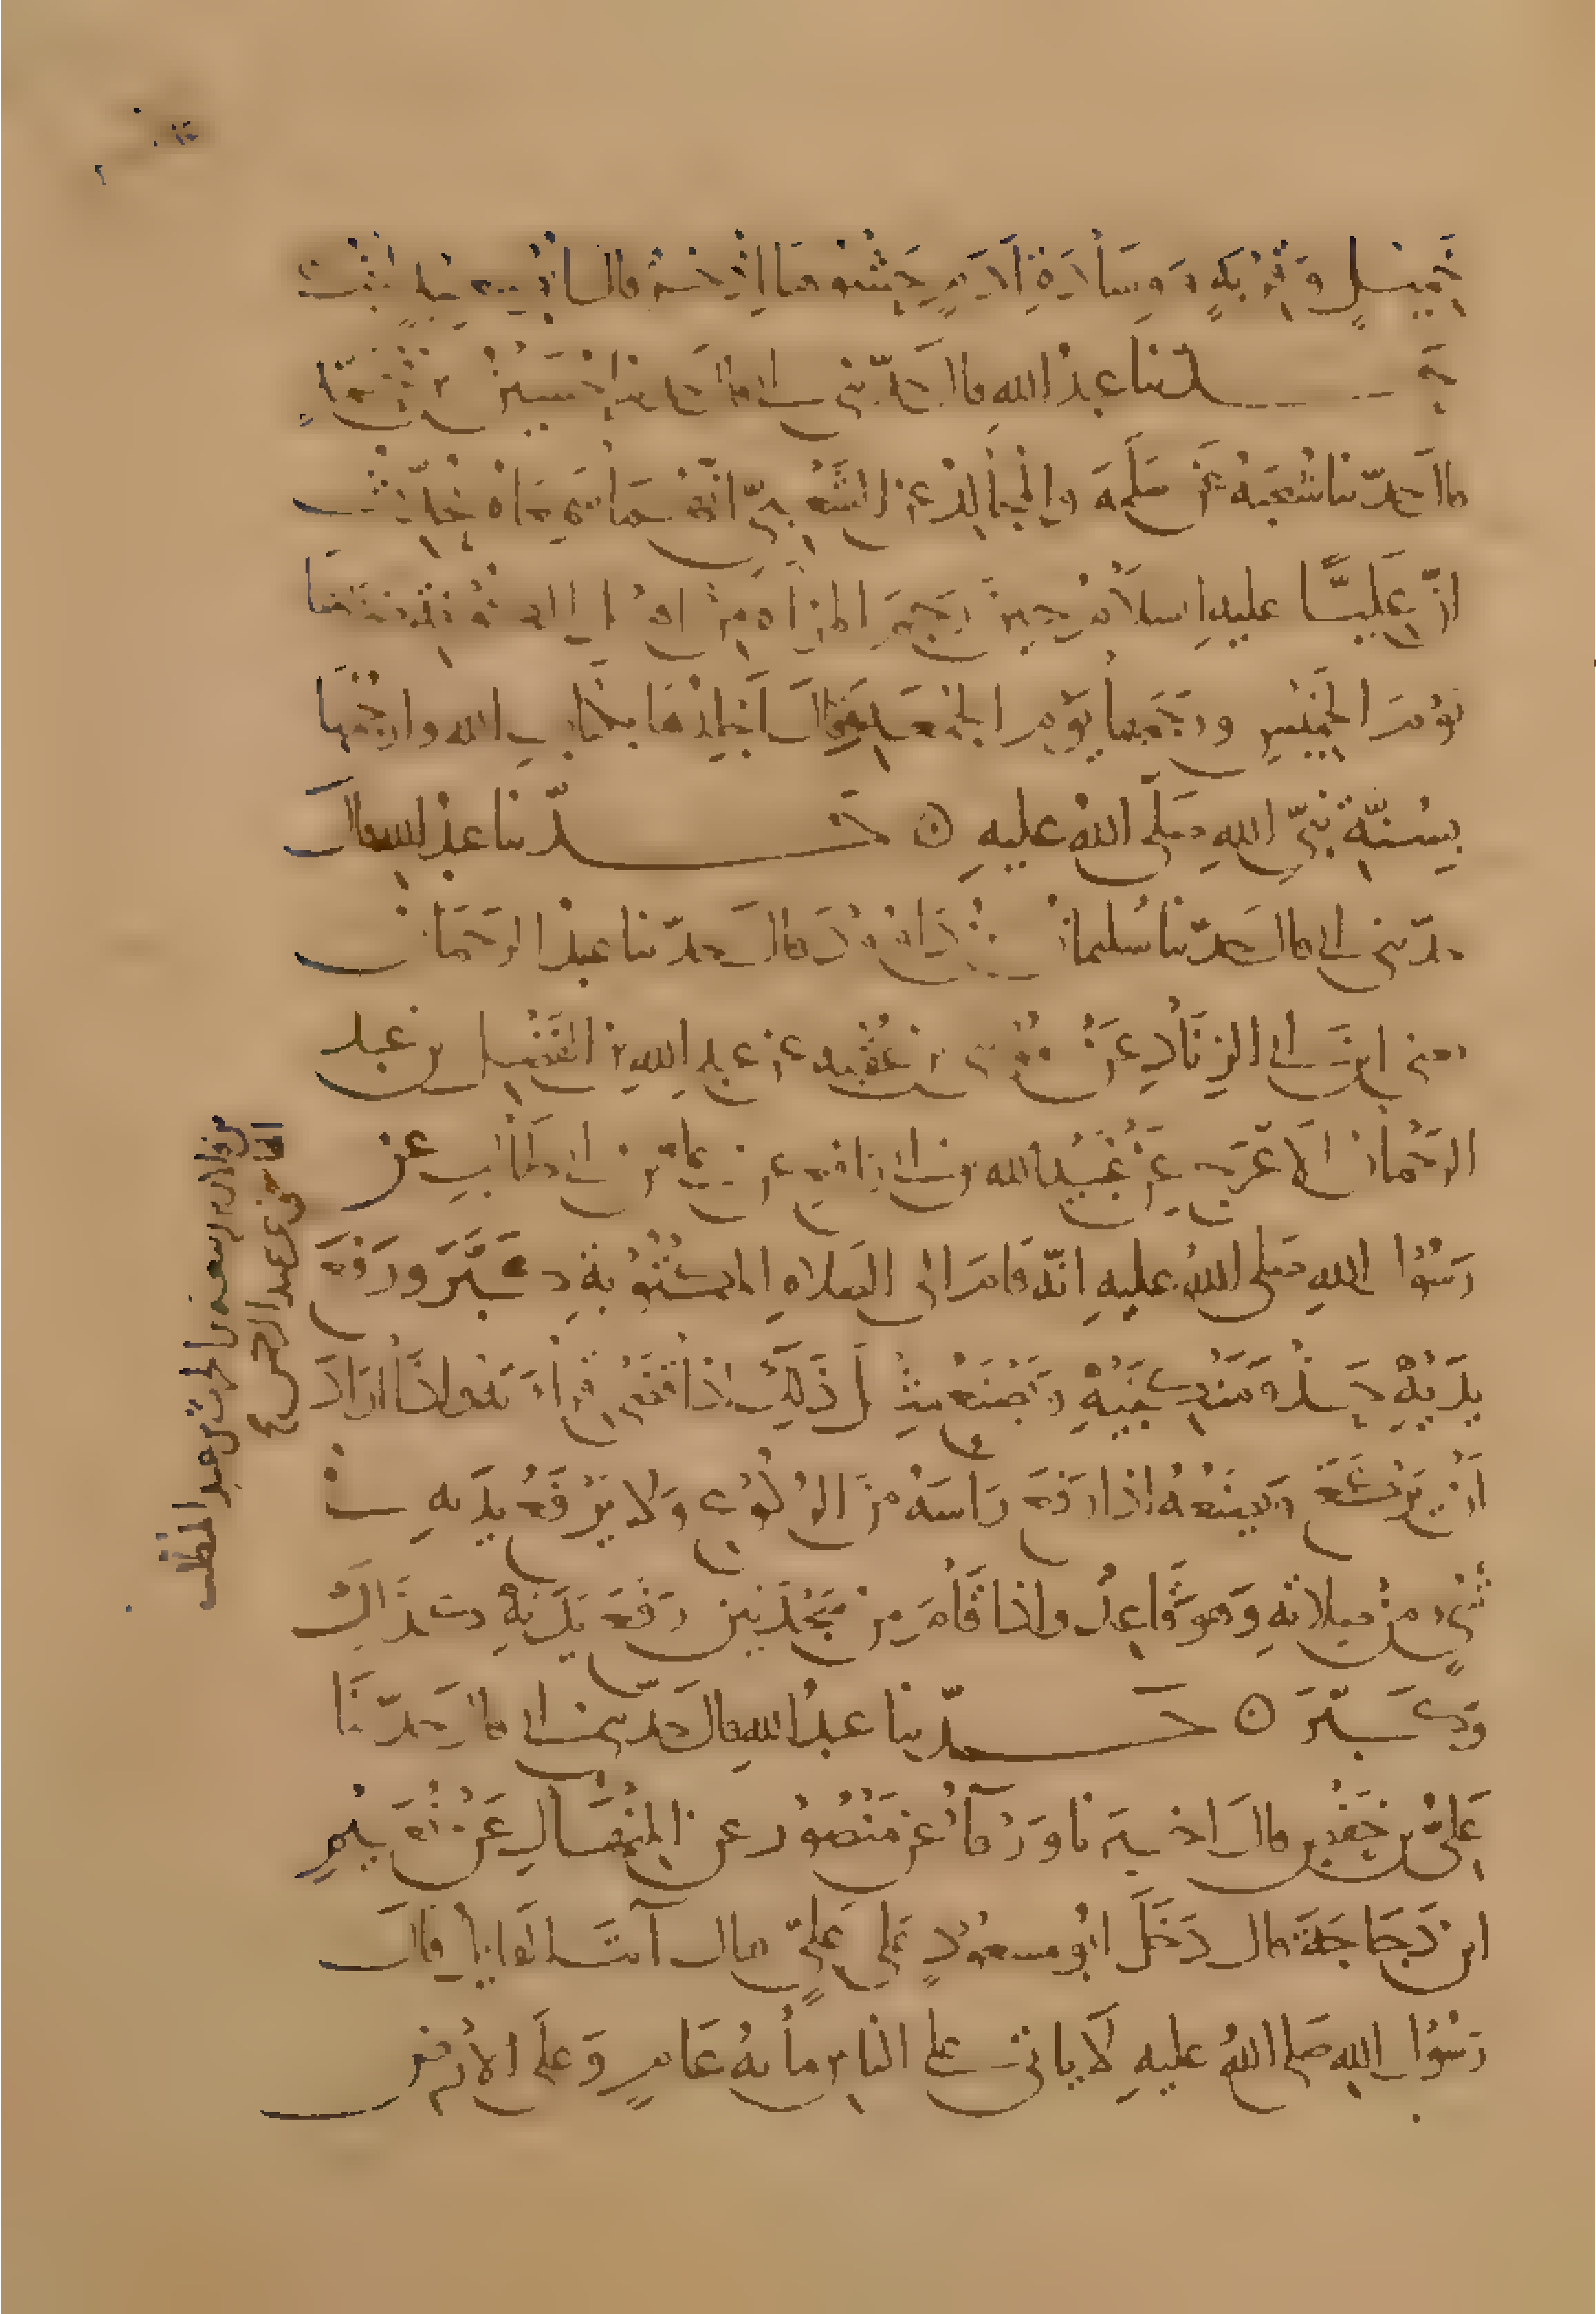 خميل وقربة ووسادة ادم حشوها اذخر قال ابو سعيد ليف
حدثنا عبد الله قال حدثني ابي قال حدثنا حسين بن
قال حدثنا شعبة عن سلمة والمجالد عن الشعبي انهما سمعاه يحدث
ان عليا عليه السلام حين رجم المراة من اهل الكوفة ضربها
يوم الخميس ورجمها يوم الجمعة وقال اجلدها بكتاب الله وارجمها
بسنة نبي الله صلى الله عليه ۞ حدثنا عبد الله قال
حدثني ابي قال حدثنا سليمان بن داوود قال حدثنا عبد الرحمان
يعني ابن ابي الزناد عن موسى بن عقبة عن عبد الله بن الفضل بن عبد
الرحمان الاعرج عن عبيد الله بن ابي رافع عن علي بن ابي طالب عن
رسول الله صلى الله عليه انه كان اذا قام الى الصلاة المكتوبة كبر ورفع
يديه حذو منكبيه ويصنع مثل ذلك اذا قضى قراءته واذا اراد
ان يركع ويصنعه اذا رفع راسه من الركوع ولا يرفع يديه في
شيء من صلاته وهو قاعد واذا قام من سجدتين رفع يديه كذلك
وكبر ۞ حدثنا عبد الله قال حدثني ابي قال حدثنا
علي بن حفص قال اخبرنا ورقاء عن منصور عن المنهال عن نعيم
ابن دجاجة قال دخل ابو مسعود على علي فقال انت القائل قال
رسول الله صلى الله عليه لا ياتي على الناس ماية عام وعلى الارض
بن ربيعة بن الحرث بن عبد المطلب
الهاشمي عن عبد الرحمن